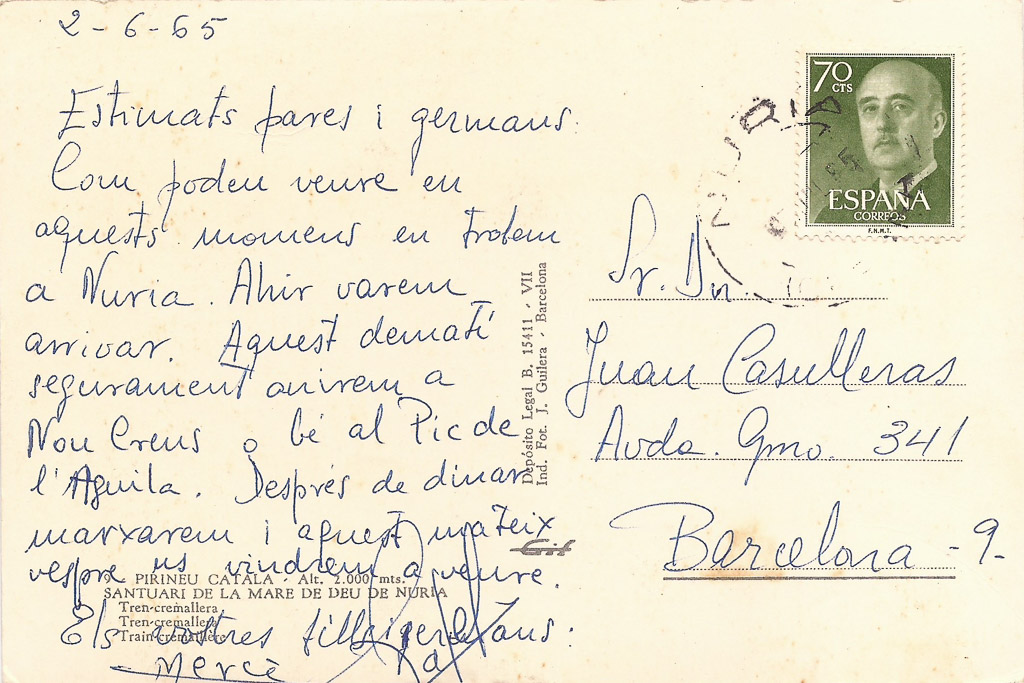 2-6-65
Estimats pares i germans:
Com podeu veure en
aquests momens en trobem
a Nuria. Ahir varem
arrivar. Aquest dematí
segurament anirem a
Nou Creus o bé al Pic de
l'Aguila. Després de dinar
marxarem i aquest mateix
vespre us vindrem a veure.
Els vostres fills i germans:
Mercè
9 PIRINEU CATALA - Alt. 2.000 mts.
SANTUARI DE LA MARE DE DEU DE NURIA
Tren-cremallera
Tren-cremallera
Train-cremaillère
Depósito Legal B. 15411 - VII
Ind. Fot. J. Guilera - Barcelona
Git
70 CTS
ESPAÑA
CORREOS
F.N.M.T.
Sr. Dn.
Juan Casulleras
Avda. Gmo. 341
Barcelona - 9-